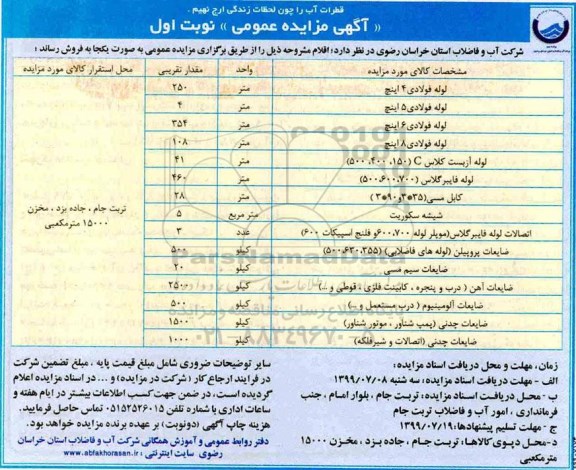 قطرات آب را چون لحظات زندگی ارج نهیم .
« آگهی مزایده عمومی » نوبت اول
شرکت آب و فاضلاب استان خراسان رضوی در نظر دارد؛ اقلام مشروحه ذیل را از طریق برگزاری مزایده عمومی به صورت یکجا به فروش رساند :
مشخصات کالای مورد مزایده واحد مقدار تقریبی محل استقرار کالای مورد مزایده
لوله فولادی ۴ اینچ متر ۲۵۰
لوله فولادی ۵ اینچ متر ۴
لوله فولادی ۶ اینچ متر ۳۵۴
لوله فولادی ۸ اینچ متر ۱۰۸
لوله آزبست کلاس C (۱۵۰، ۲۰۰، ۵۰۰) متر ۴۱
لوله فایبرگلاس (۵۰۰،۶۰۰،۷۰۰) متر ۴۶۰
کابل مسی (۳۵*۳و۹۰*۳) متر ۲۸
شیشه سکوریت متر مربع ۵
اتصالات لوله فایبرگلاس(موپلر لوله ۶۰۰،۷۰۰و فلنج اسپیکات ۶۰۰) عدد ۳
ضایعات پروپیلن (لوله های فاضلابی) (۵۰۰،۶۳۰،۳۵۵) کیلو ۵۰۰
ضایعات سیم مسی کیلو ۲۰
ضایعات آهن ( درب و پنجره ، کابینت فلزی ، قوطی و ..) کیلو ۲۵۰۰
ضایعات آلومینیوم ( درب مستعمل و ..) کیلو ۵۰۰
ضایعات چدنی (پمپ شناور ، موتور شناور) کیلو ۱۵۰۰
ضایعات چدنی (اتصالات و شیرفلکه) کیلو ۱۰۰۰
تربت جام ، جاده یزد ، مخزن
۱۵۰۰۰ مترمکعبی
ParsNamadData
۰۲۱-۸۸۳۴۹۶۷۰
زمان، مهلت و محل دریافت اسناد مزایده:
الف - مهلت دریافت اسناد مزایده: سه شنبه ۱۳۹۹/۰۷/۰۸
ب - محل دریافت اسناد مزایده: تربت جام ، بلوار امام ، جنب
فرمانداری ، امور آب و فاضلاب تربت جام
ج - مهلت تسلیم پیشنهادها: ۱۳۹۹/۰۷/۱۹
د - محل دپوی کالاها: تربت جام ، جاده یزد ، مخزن ۱۵۰۰۰
مترمکعبی
سایر توضیحات ضروری شامل مبلغ قیمت پایه ، مبلغ تضمین شرکت
در فرایند ارجاع کار ( شرکت در مزایده) و ... در اسناد مزایده اعلام
گردیده است، در ضمن جهت کسب اطلاعات بیشتر در ایام هفته و
ساعات اداری با شماره تلفن ۰۵۱۵۲۵۲۶۰۱۵ تماس حاصل فرمایید.
هزینه چاپ آگهی (دونوبت) بر عهده برنده مزایده خواهد بود.
دفتر روابط عمومی و آموزش همگانی شرکت آب و فاضلاب استان خراسان
رضوی سایت اینترنتی : www.abfakhorasan.ir